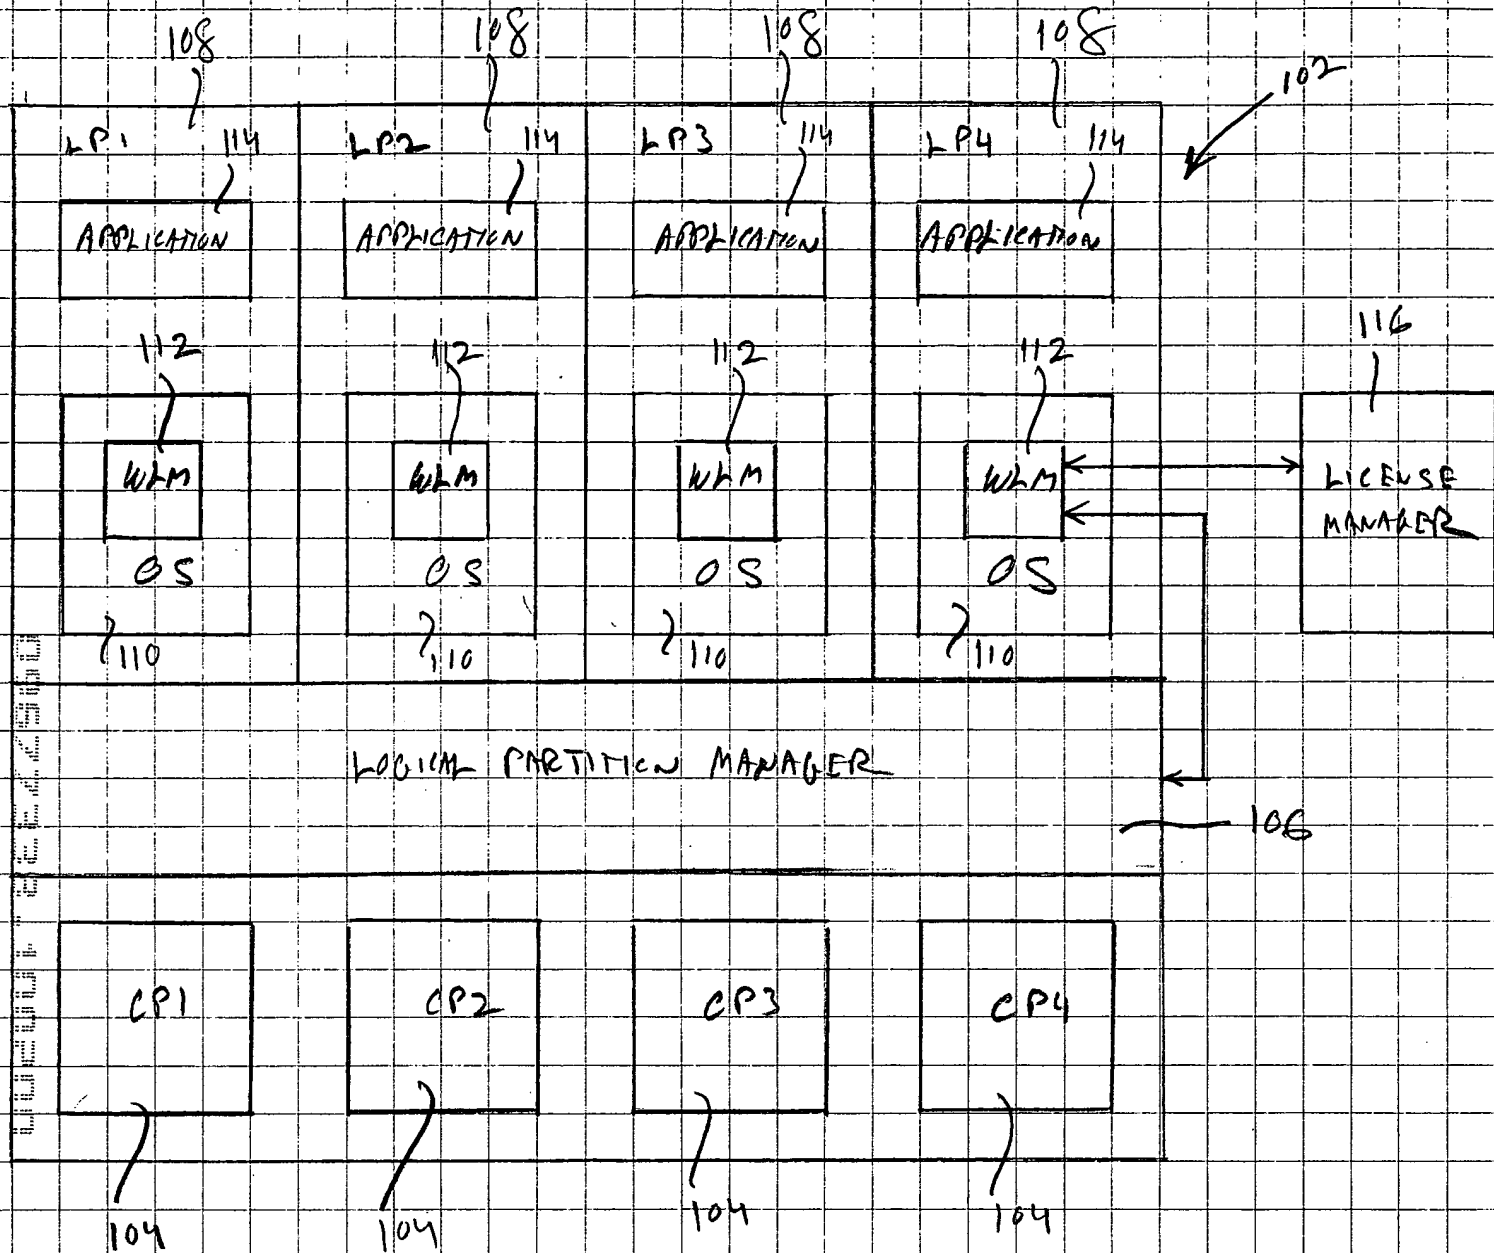 108 108 108 108
102
LP1 114 LP2 114 LP3 114 LP4 114
APPLICATION APPLICATION APPLICATION APPLICATION
112 112 112 112
116
WLM WLM WLM WLM
LICENSE
MANAGER
OS OS OS OS
110 110 110 110
LOGICAL PARTITION MANAGER
106
CP1 CP2 CP3 CP4
104 104 104 104